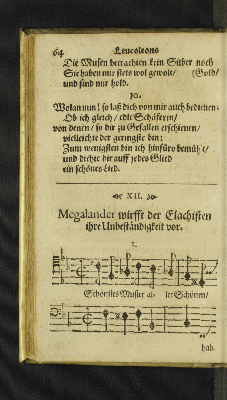 64 Leucoleons
Die Musen betrachten kein Silber noch
Sie haben mir stets wol gewolt/ (Gold/
und sind mir hold.
30.
Wolan nun! so laß dich von mir auch bedienen:
Ob ich gleich/ edle Schäferin/
von denen/ so dir zu Gefallen erschienen/
vielleichte der geringste bin:
Zum wenigsten bin ich hinfüro bemüh't/
und dichte dir auff jedes Glied
ein schönes Lied.
XII.
Megalander wirfft der Elachisten
ihre Unbeständigkeit vor.
1.
Schönstes Muster al- ler Schönen/
hab.